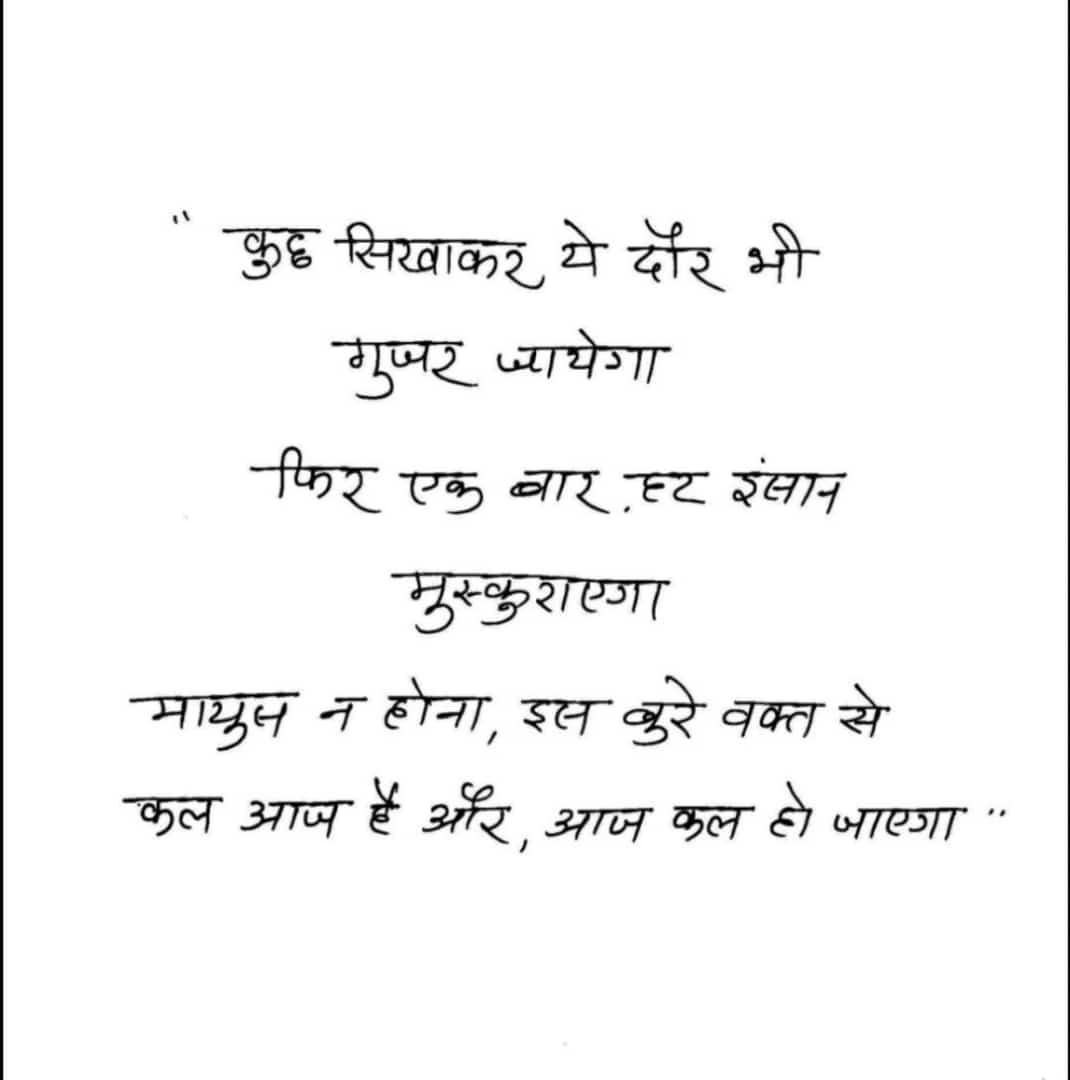 " कुछ सिखाकर ये दौर भी
गुजर जायेगा
फिर एक बार हर इंसान
मुस्कुराएगा
मायुस न होना, इस बुरे वक्त से
कल आज है और, आज कल हो जाएगा "